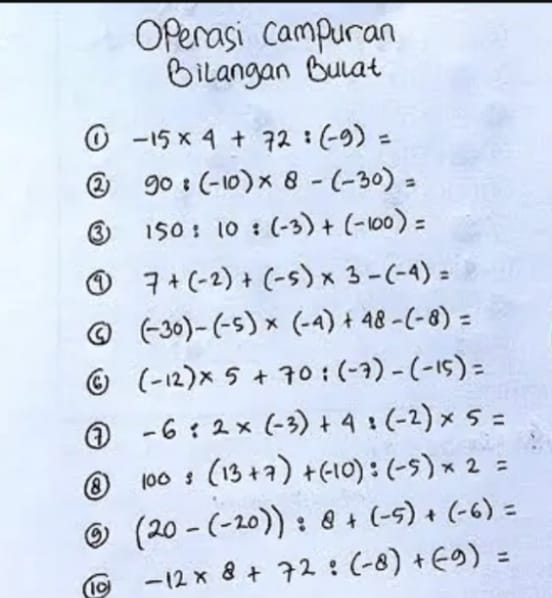 Operasi Campuran
Bilangan Bulat
① -15 x 4 + 72 : (-9) =
② 90 : (-10) x 8 - (-30) =
③ 150 : 10 : (-3) + (-100) =
④ 7 + (-2) + (-5) x 3 - (-4) =
⑤ (-30) - (-5) x (-4) + 48 - (-8) =
⑥ (-12) x 5 + 70 : (-7) - (-15) =
⑦ -6 : 2 x (-3) + 4 : (-2) x 5 =
⑧ 100 : (13 + 7) + (-10) : (-5) x 2 =
⑨ (20 - (-20)) : 8 + (-5) + (-6) =
⑩ -12 x 8 + 72 : (-8) + (-9) =